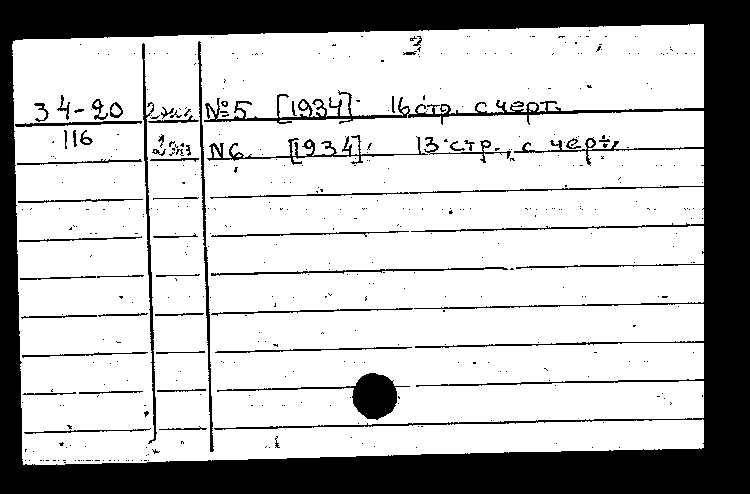 3
34-20 2 экз. №5. [1934]. 16 стр. с черт.
116 2 экз N6. [1934]. 13 стр., с черт.